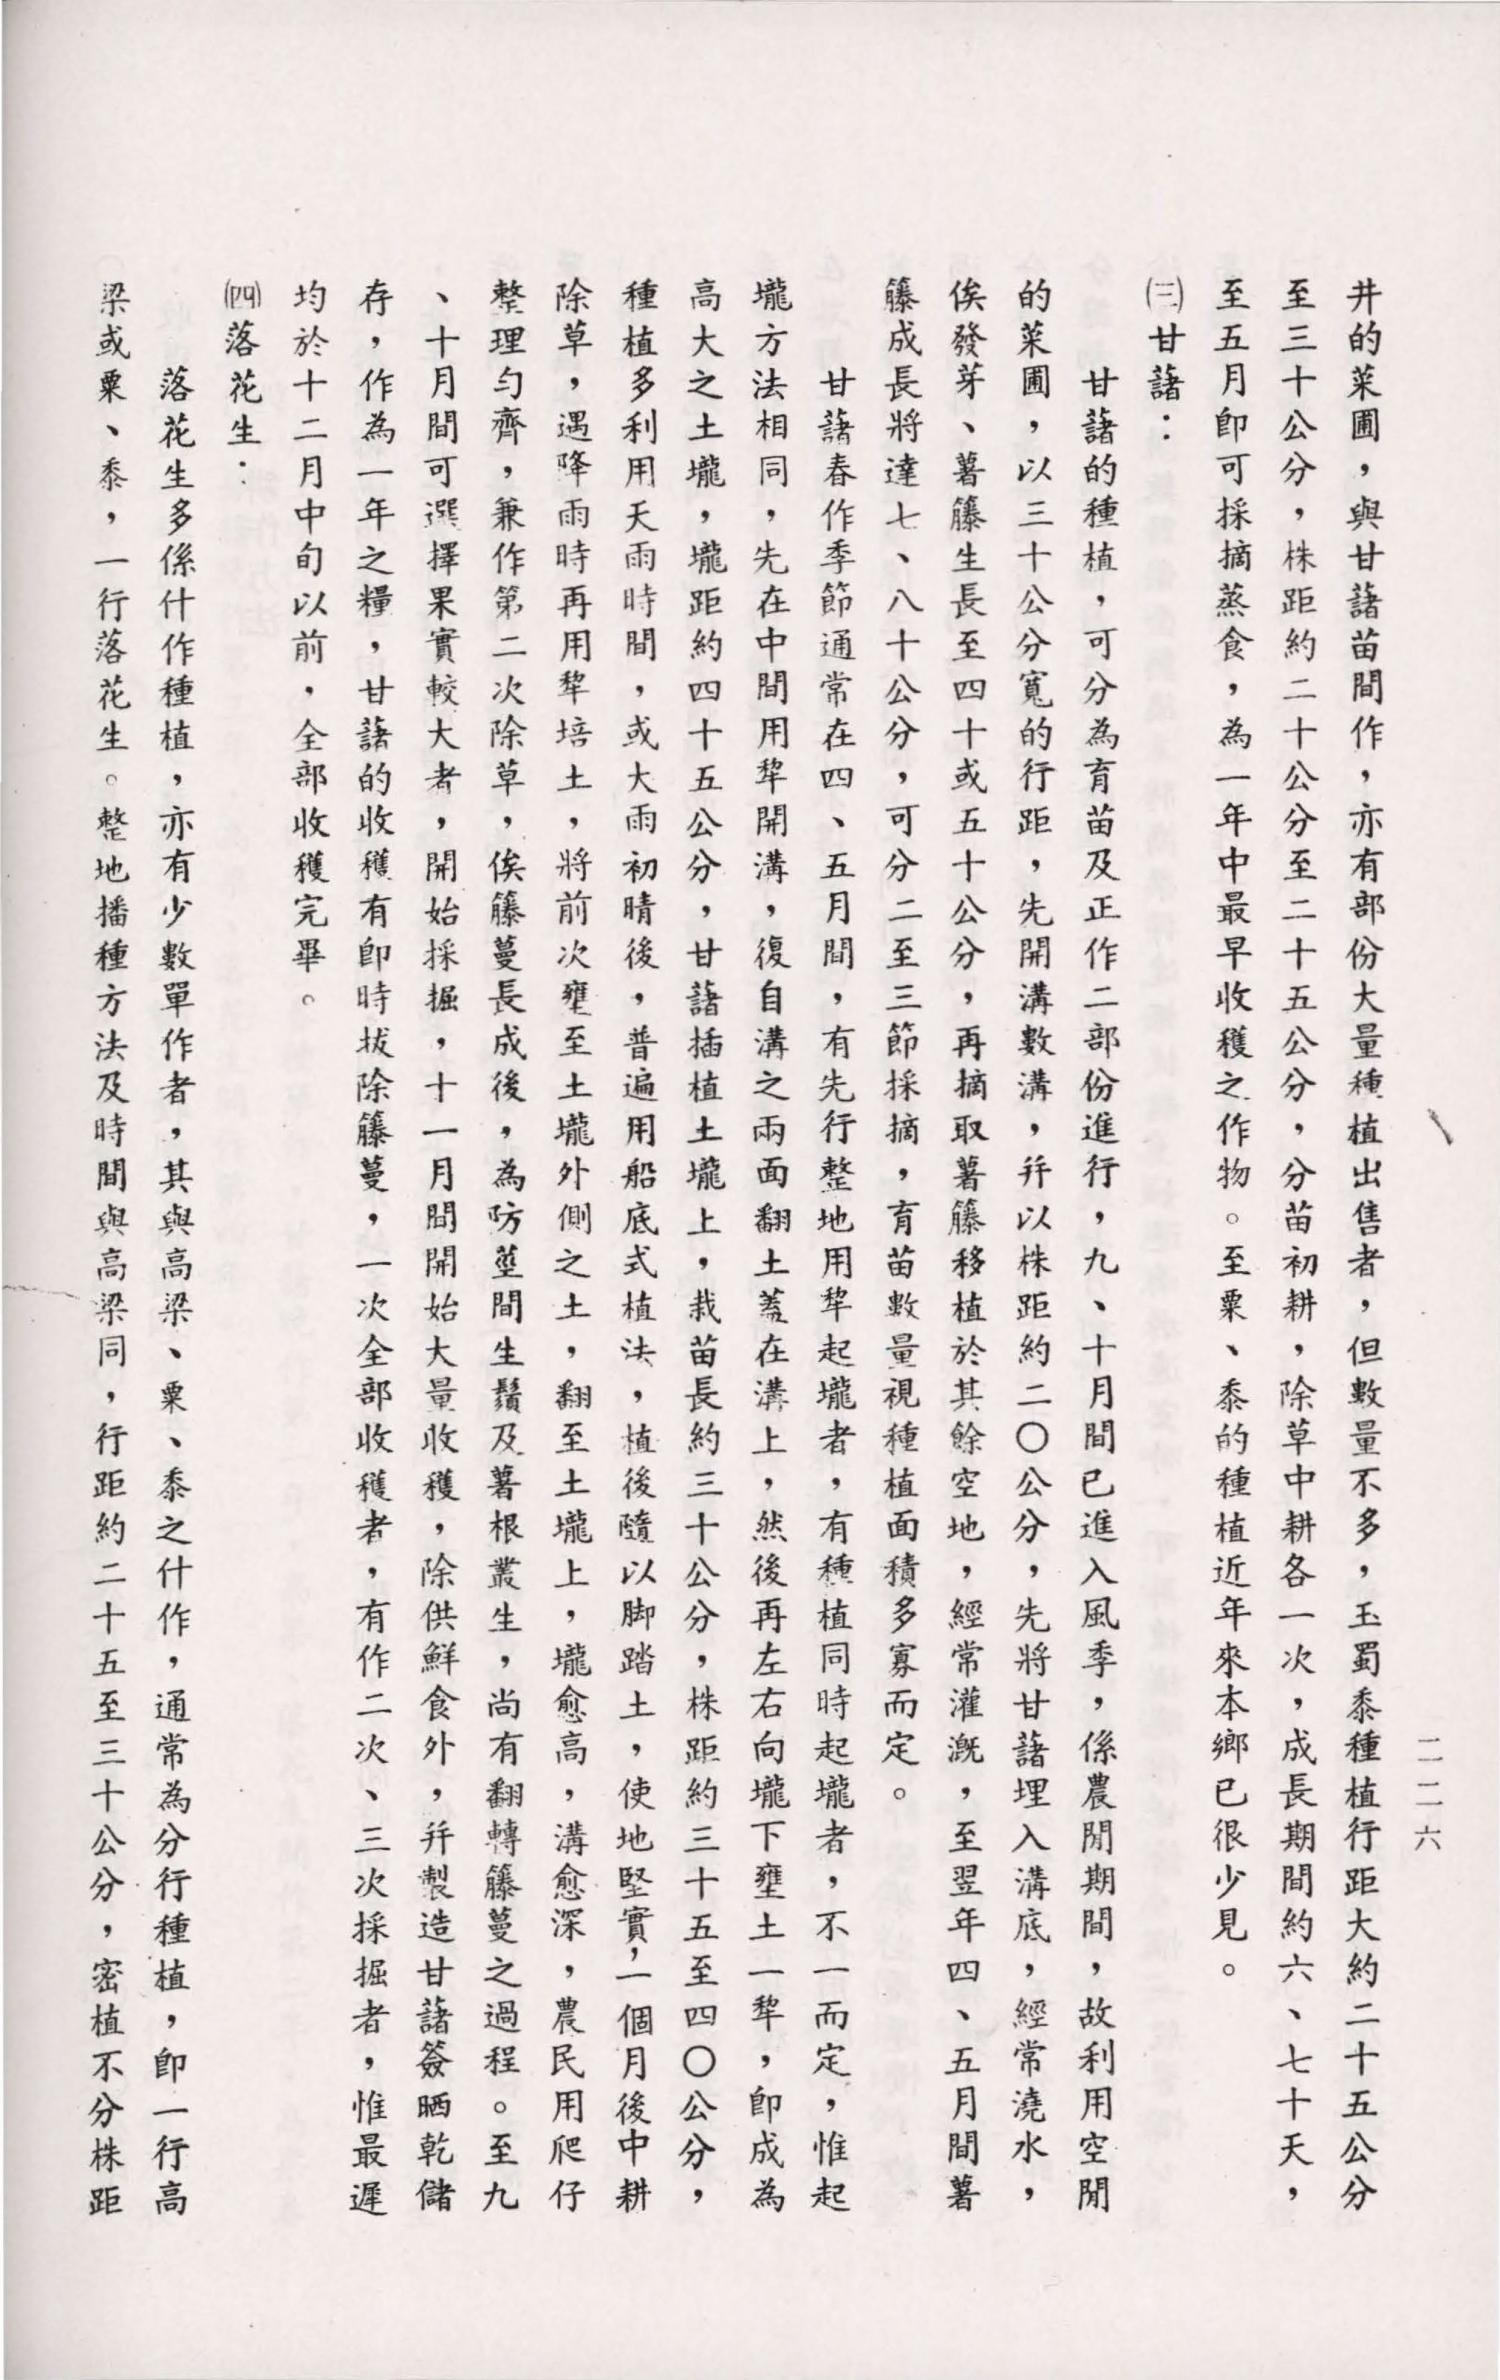 二二六
井的菜圃，與甘藷苗間作，亦有部份大量種植出售者，但數量不多，玉蜀黍種植行距大約二十五公分
至三十公分，株距約二十公分至二十五公分，分苗初耕，除草中耕各一次，成長期間約六、七十天，
至五月卽可採摘蒸食，為一年中最早收穫之作物。至粟、黍的種植近年來本鄉已很少見。
㈢甘藷：
甘藷的種植，可分為育苗及正作二部份進行，九、十月間已進入風季，係農閒期間，故利用空閒
的菜圃，以三十公分寬的行距，先開溝數溝，幷以株距約二〇公分，先將甘藷埋入溝底，經常澆水，
俟發芽、薯籐生長至四十或五十公分，再摘取薯籐移植於其餘空地，經常灌溉，至翌年四、五月間薯
籐成長將達七、八十公分，可分二至三節採摘，育苗數量視種植面積多寡而定。
甘藷春作季節通常在四、五月間，有先行整地用犂起壠者，有種植同時起壠者，不一而定，惟起
壠方法相同，先在中間用犂開溝，復自溝之兩面翻土蓋在溝上，然後再左右向壠下壅土一犂，卽成為
高大之土壠，壠距約四十五公分，甘藷插植土壠上，栽苗長約三十公分，株距約三十五至四〇公分，
種植多利用天雨時間，或大雨初晴後，普遍用船底式植法，植後隨以脚踏土，使地堅實，一個月後中耕
除草，遇降雨時再用犂培土，將前次壅至土壠外側之土，翻至土壠上，壠愈高，溝愈深，農民用爬仔
整理勻齊，兼作第二次除草，俟籐蔓長成後，為防莖間生鬚及薯根叢生，尚有翻轉籐蔓之過程。至九
、十月間可選擇果實較大者，開始採掘，十一月間開始大量收穫，除供鮮食外，幷製造甘藷簽晒乾儲
存，作為一年之糧，甘藷的收穫有卽時拔除籐蔓，一次全部收穫者，有作二次、三次採掘者，惟最遲
均於十二月中旬以前，全部收穫完畢。
㈣落花生：
落花生多係什作種植，亦有少數單作者，其與高梁、粟、黍之什作，通常為分行種植，卽一行高
梁或粟、黍，一行落花生。整地播種方法及時間與高梁同，行距約二十五至三十公分，密植不分株距